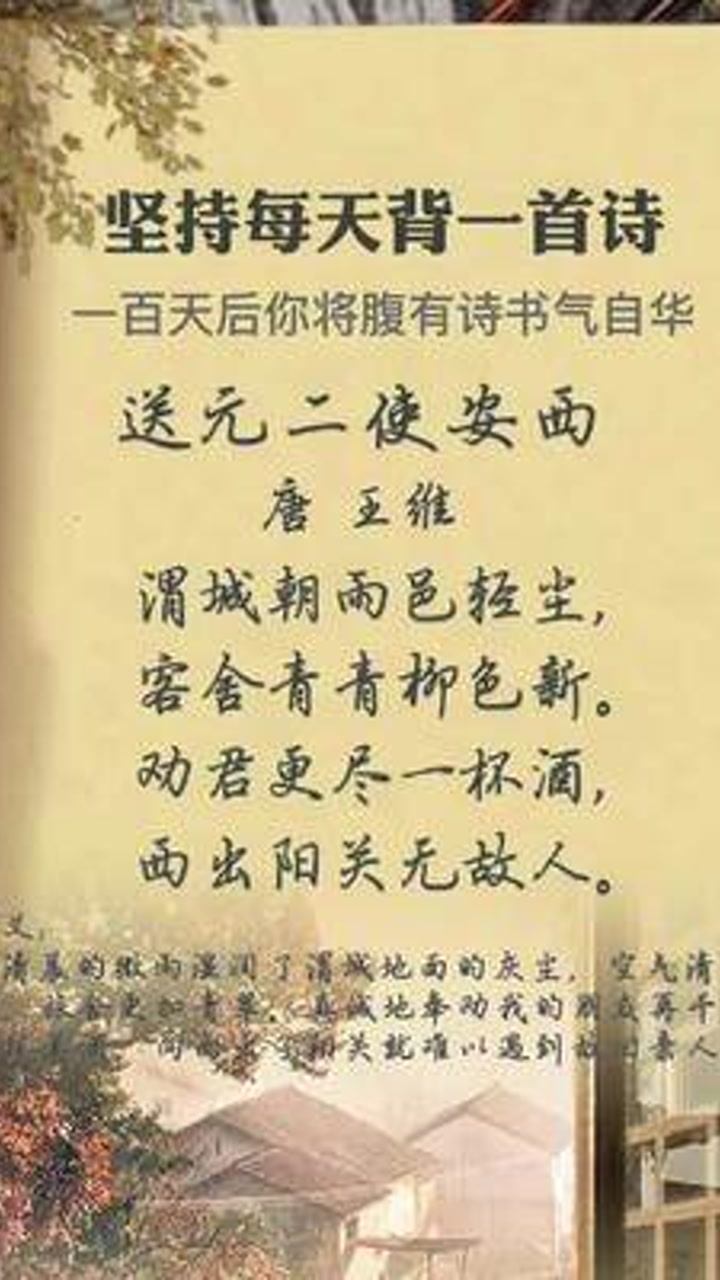 坚持每天背一首诗
一百天后你将腹有诗书气自华
送元二使安西
唐 王维
渭城朝雨邑轻尘,
客舍青青柳色新。
劝君更尽一杯酒,
西出阳关无故人。
义:
清晨的微雨湿润了渭城地面的灰尘, 空气清
旅舍更加青翠。真诚地奉劝我的朋友再干
向西出了阳关就难以遇到故旧亲人